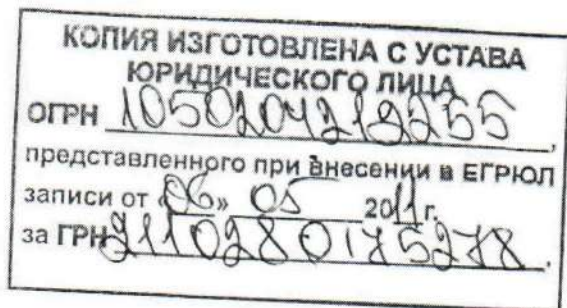 КОПИЯ ИЗГОТОВЛЕНА С УСТАВА
ЮРИДИЧЕСКОГО ЛИЦА
ОГРН 1050204212255,
представленного при внесении в ЕГРЮЛ
записи от «06» 05 2011 г.
за ГРН 2110280175278,